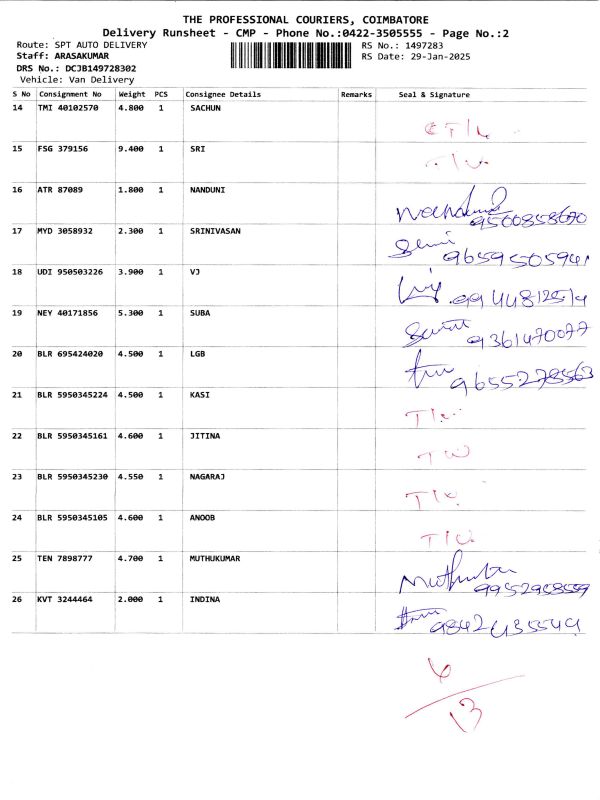 THE PROFESSIONAL COURIERS, COIMBATORE
Delivery Runsheet - CMP - Phone No.:0422-3505555 - Page No.:2
Route: SPT AUTO DELIVERY RS No.: 1497283
Staff: ARASAKUMAR RS Date: 29-Jan-2025
DRS No.: DCJB149728302
Vehicle: Van Delivery
S No Consignment No Weight PCS Consignee Details Remarks Seal & Signature
14 TMI 40102570 4.800 1 SACHUN
15 FSG 379156 9.400 1 SRI
16 ATR 87089 1.800 1 NANDUNI
9500858670
17 MYD 3058932 2.300 1 SRINIVASAN
9659505941
18 UDI 950503226 3.900 1 VJ
9944812514
19 NEY 40171856 5.300 1 SUBA
9361470077
20 BLR 695424020 4.500 1 LGB
9655278563
21 BLR 5950345224 4.500 1 KASI
22 BLR 5950345161 4.600 1 JITINA
23 BLR 5950345230 4.550 1 NAGARAJ
24 BLR 5950345105 4.600 1 ANOOB
25 TEN 7898777 4.700 1 MUTHUKUMAR
9952958559
26 KVT 3244464 2.000 1 INDINA
13